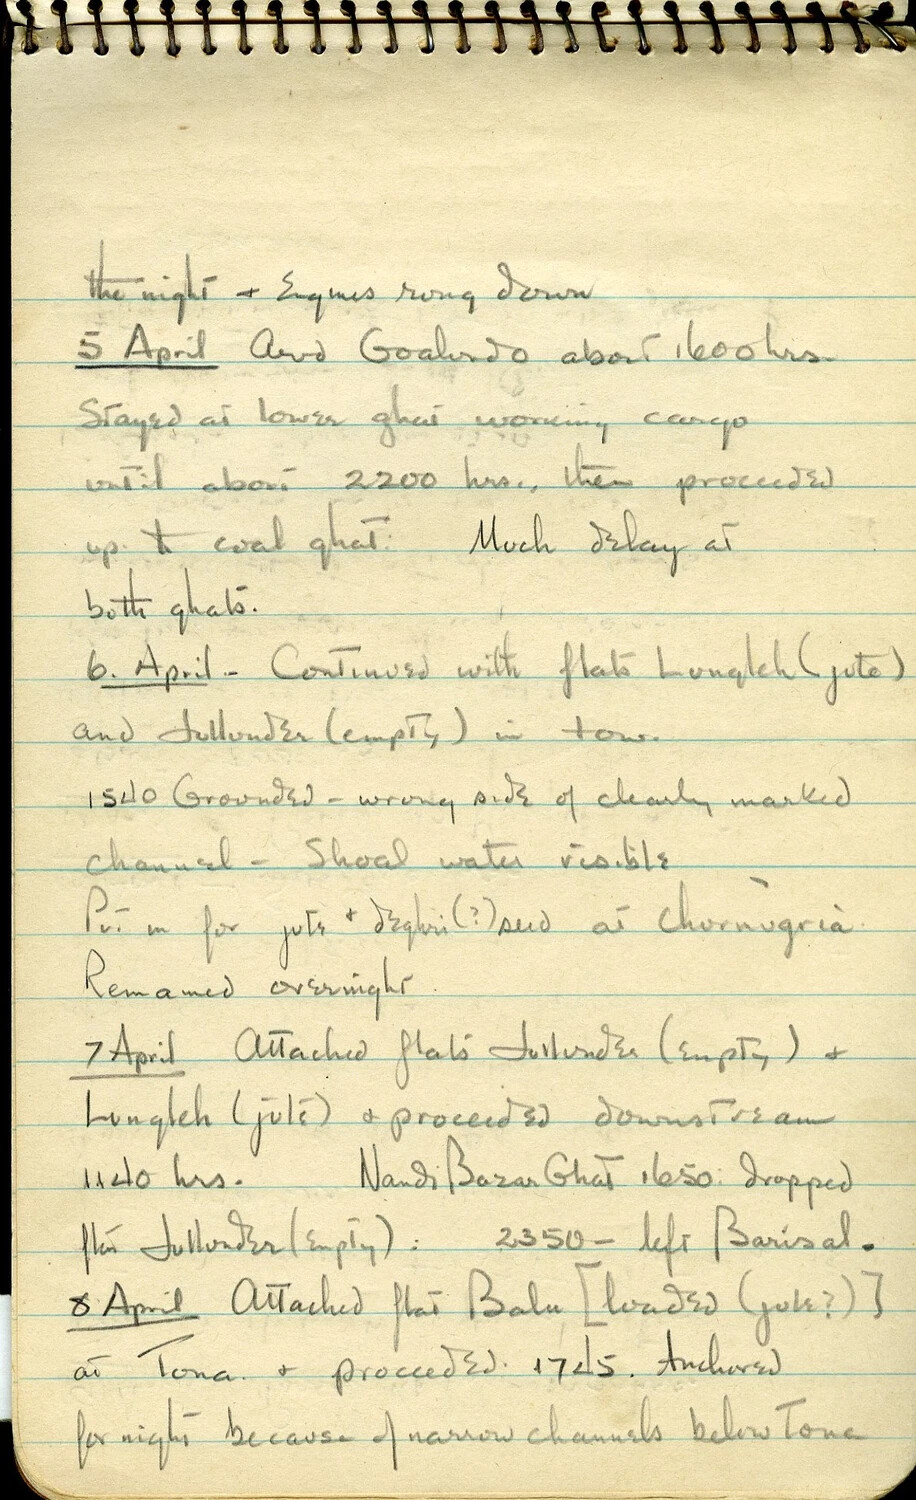 the night + Engines rung down
5 April Arvd Goalundo about 1600 hrs.
Stayed at lower ghat working cargo
until about 2200 hrs., then proceeded
up to coal ghat. Much delay at
both ghats.
6. April - Continued with flats Lungleh (jute)
and Jullunder (empty) in tow.
1540 Grounded - wrong side of clearly marked
channel - Shoal water visible
Put in for jute + (?) seed at Chormugria
Remained overnight.
7 April Attached flats Jullunder (empty) +
Lungleh (jute) + proceeded downstream
1140 hrs. Nandi Bazar Ghat 1650: dropped
flat Jullunder (empty): 2350 - left Barisal.
8 April Attached flat Balu [loaded (jute?)]
at Tona. + proceeded. 1745. Anchored
for night because of narrow channels below Tona